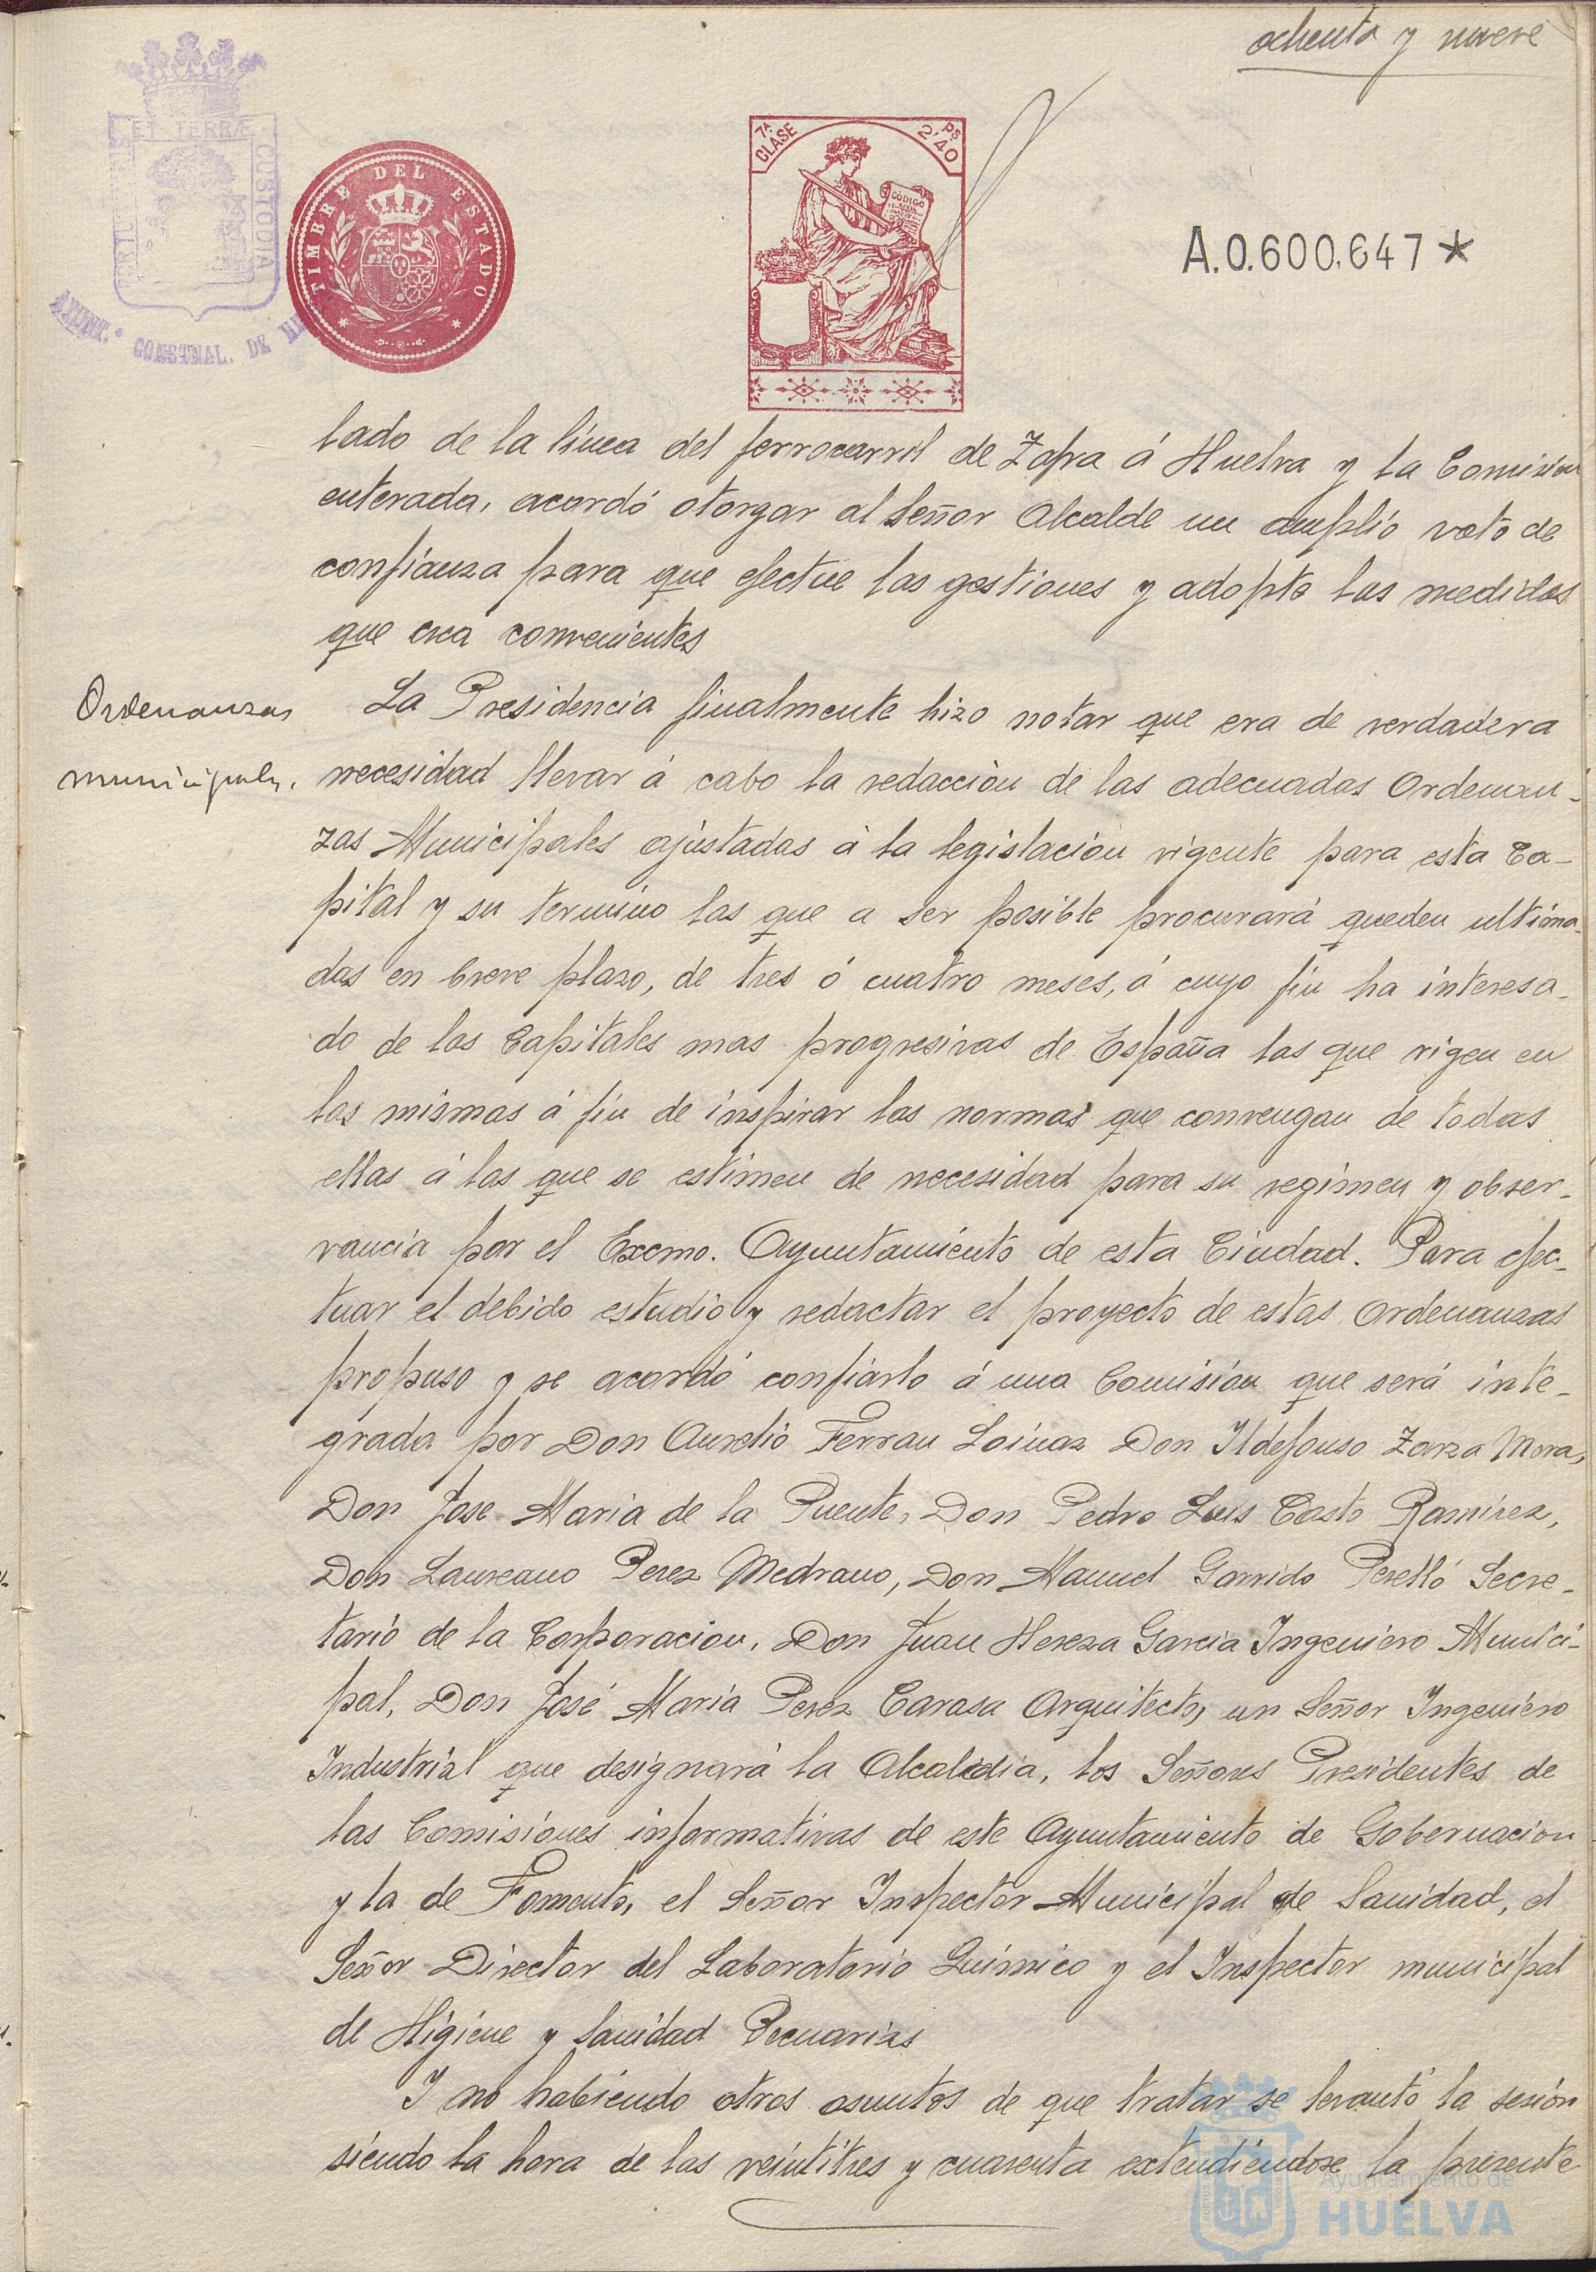 ochenta y nueve
ET TERRÆ
CUSTODIA
AYUNT.º CONSTNAL. DE
TIMBRE DEL ESTADO
7ª CLASE
2'40 Ps
CÓDIGO
A.0.600.647*
lado de la linea del ferrocarril de Zafra á Huelva y la Comisión
enterada, acordó otorgar al Señor Alcalde un amplio voto de
confianza para que efectue las gestiones y adopte las medidas
que crea convenientes
Ordenanzas
municipales.
La Presidencia finalmente hizo notar que era de verdadera
necesidad llevar á cabo la redacción de las adecuadas Ordenan-
zas Municipales ajustadas á la legislación vigente para esta Ca-
pital y su termino las que a ser posible procurará queden ultima-
das en breve plazo, de tres ó cuatro meses, á cuyo fin ha interesa-
do de las Capitales mas progresivas de España las que rigen en
las mismas á fin de inspirar las normas que convengan de todas
ellas á las que se estimen de necesidad para su regimen y obser-
vancia por el Excmo. Ayuntamiento de esta Ciudad. Para efec-
tuar el debido estudio y redactar el proyecto de estas Ordenanzas
propuso y se acordó confiarlo á una Comisión que será inte-
grada por Don Aurelio Ferran Loinaz Don Ildefonso Zarza Mora,
Don Jose Maria de la Puente, Don Pedro Luis Casto Ramirez,
Don Laureano Perez Medrano, Don Manuel Garrido Perelló Secre-
tario de la Corporacion, Don Juan Hereza Garcia Ingeniero Munici-
pal, Don José Maria Perez Carasa Arquitecto, un Señor Ingeniero
Industrial que designará la Alcaldia, los Señores Presidentes de
las Comisiones informativas de este Ayuntamiento de Gobernacion
y la de Fomento, el Señor Inspector Municipal de Sanidad, el
Señor Director del Laboratorio Quimico y el Inspector municipal
de Higiene y Sanidad Pecuarias
Y no habiendo otros asuntos de que tratar se levantó la sesión
siendo la hora de las veintitres y cuarenta extendiéndose la presente
Ayuntamiento de
HUELVA